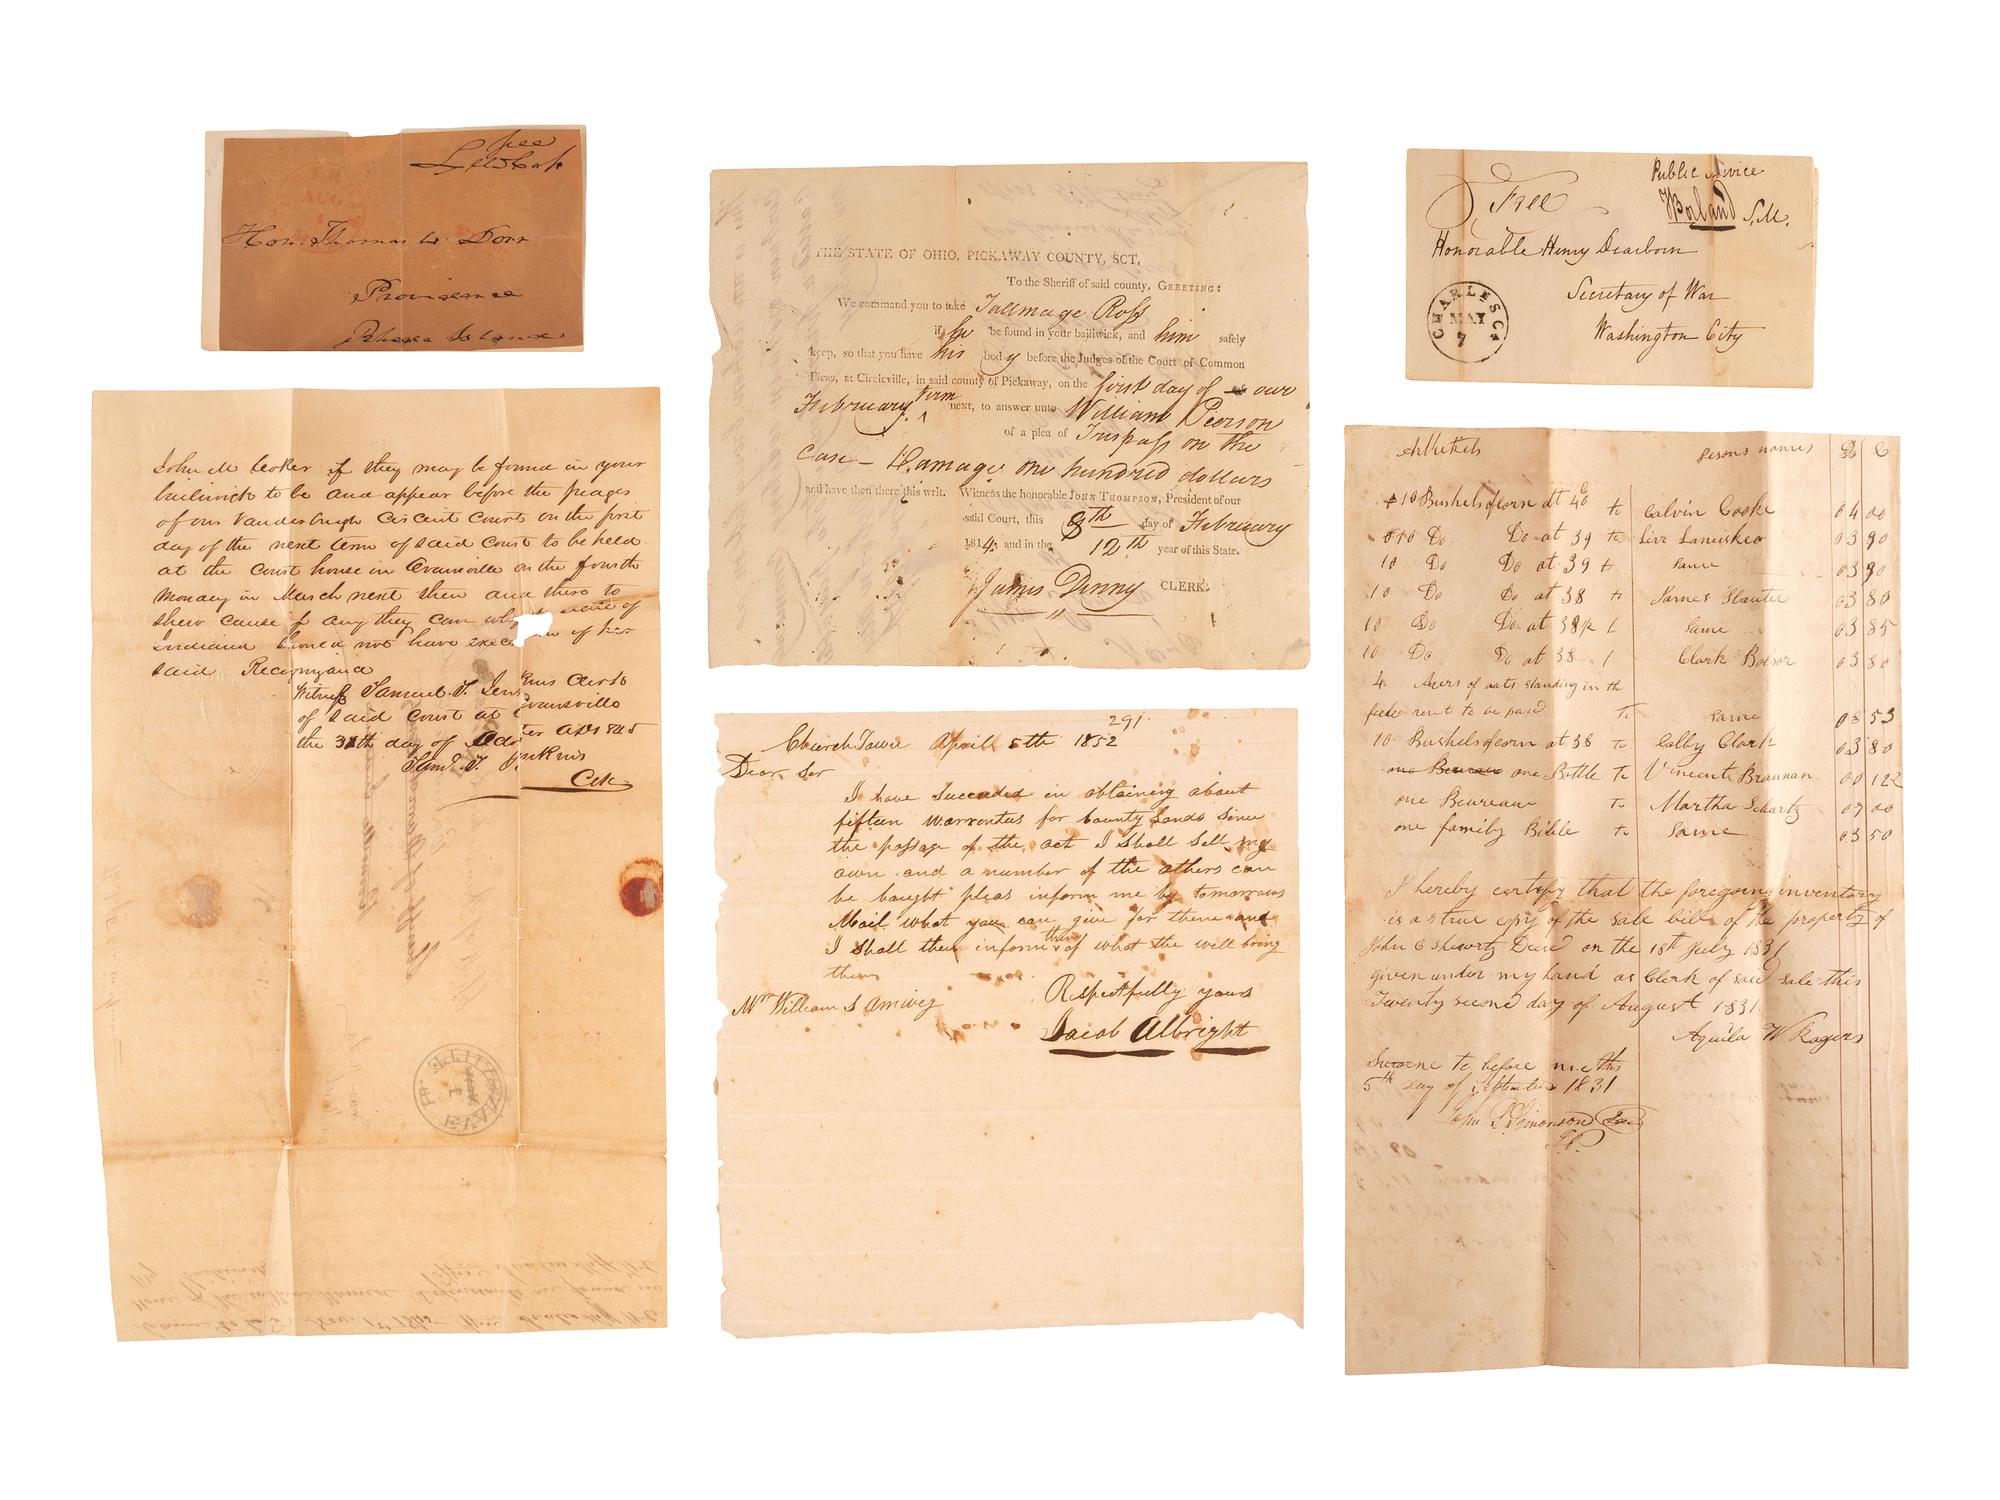 free
Hon. Thomas W Dorr
Providence
Rhode Island
AUG
John M Coker if they may be found in your
bailiwick to be and appear before the Juages
of our Vanderburgh Circuit Court on the first
day of the next term of said Court to be held
at the Court house in Evansville on the fourth
Monday in March next then and there to
shew cause if any they can why State of
Indiana should not have exec of her
said Recognizance
Witness Samuel T. Jenkins Clerk
of said Court at Evansville
the 31th day of A D 1845
Saml. T. Jenkins
Clk
EVANSVILLE
THE STATE OF OHIO, PICKAWAY COUNTY, SCT,
To the Sheriff of said county, GREETING:
We command you to take Tallmage Ross
if he be found in your bailiwick, and him safely
keep, so that you have his body before the Judges of the Court of Common
Pleas, at Circleville, in said county of Pickaway, on the first day of our
February term next, to answer unto William Peerson
of a plea of Trespass on the
Case – Damage one hundred dollars
and have then there this writ. Witness the honorable JOHN THOMPSON, President of our
said Court, this 8th day of February
1814, and in the 12th year of this State.
James Denny CLERK.
291
Church Town April 5th 1852
Dear Sir
I have Succeded in obtaining about
fifteen Warrentus for bounty Lands Since
the passage of the act I Shall Sell my
own and a number of the others can
be bought pleas inform me by tomorrows
Mail what you can give for them and
I Shall then inform them of what the will bring
them
Respectfully yours
Mr William S Amweg
Jacob Albright
Public Service
Free
Boland S.M.
Honorable Henry Dearborn
Secretary of War
Washington City
CHARLES C.
MAY
7
Artickels Persons names D C
10 Bushels of corn at 40 c to Calvin Cooke 04 00
10 Do Do at 39 to 03 90
10 Do Do at 39 t same 03 90
10 Do Do at 38 to James 03 80
10 Do Do at 38½ t same 03 85
10 Do Do at 38 t Clark 03 80
4 Acers of oats standing in the
field rent to be paid to same 08 53
10 Bushels of corn at 38 to Colby Clark 03 80
one Bureau one Bottle to Vincent Brannan 00 12½
one Beureau to Martha Schwartz 09 00
one family Bible to same 03 50
I hereby certify that the foregoing inventory
is a true copy of the sale bill of the property of
John C Deced on the 18th July 1831
given under my hand as Clerk of said sale this
Twenty second day of August 1831
Aquila W Rogers
Sworne to before me this
5th Day of September 1831
John S Simonson
J.P.